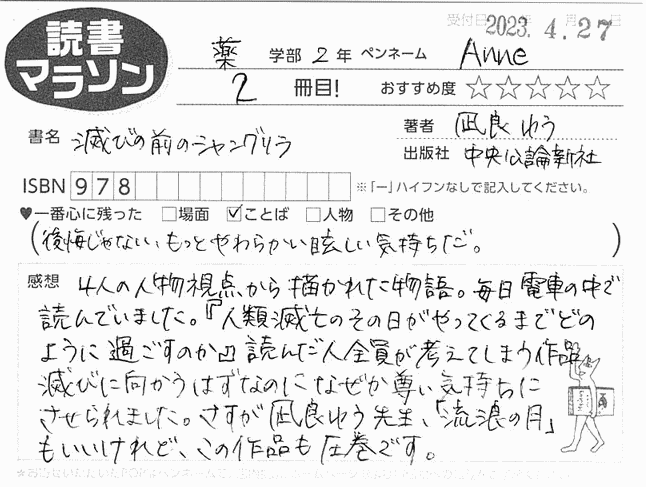 受付日 2023年 4月 27日
読書
マラソン
薬 学部 2年 ペンネーム Anne
2 冊目! おすすめ度 ☆☆☆☆☆
書名 滅びの前のシャングリラ
著者 凪良ゆう
出版社 中央公論新社
ISBN 978 ※「ー」ハイフンなしで記入してください。
♥一番心に残った □場面 ☑ことば □人物 □その他
(後悔じゃない、もっとやわらかい眩しい気持ちだ。)
感想 4人の人物視点から描かれた物語。毎日電車の中で
読んでいました。『人類滅亡のその日がやってくるまでどの
ように過ごすのか』読んだ人全員が考えてしまう作品
滅びに向かうはずなのになぜか尊い気持ちに
させられました。さすが凪良ゆう先生、「流浪の月」
もいいけれど、この作品も圧巻です。